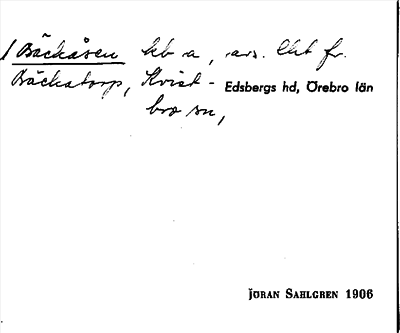 / Bäckåsen kb a, avs. lht fr.
Bäckatorp, Kvist- Edsbergs hd, Örebro län
bro sn,
JÖRAN SAHLGREN 1906